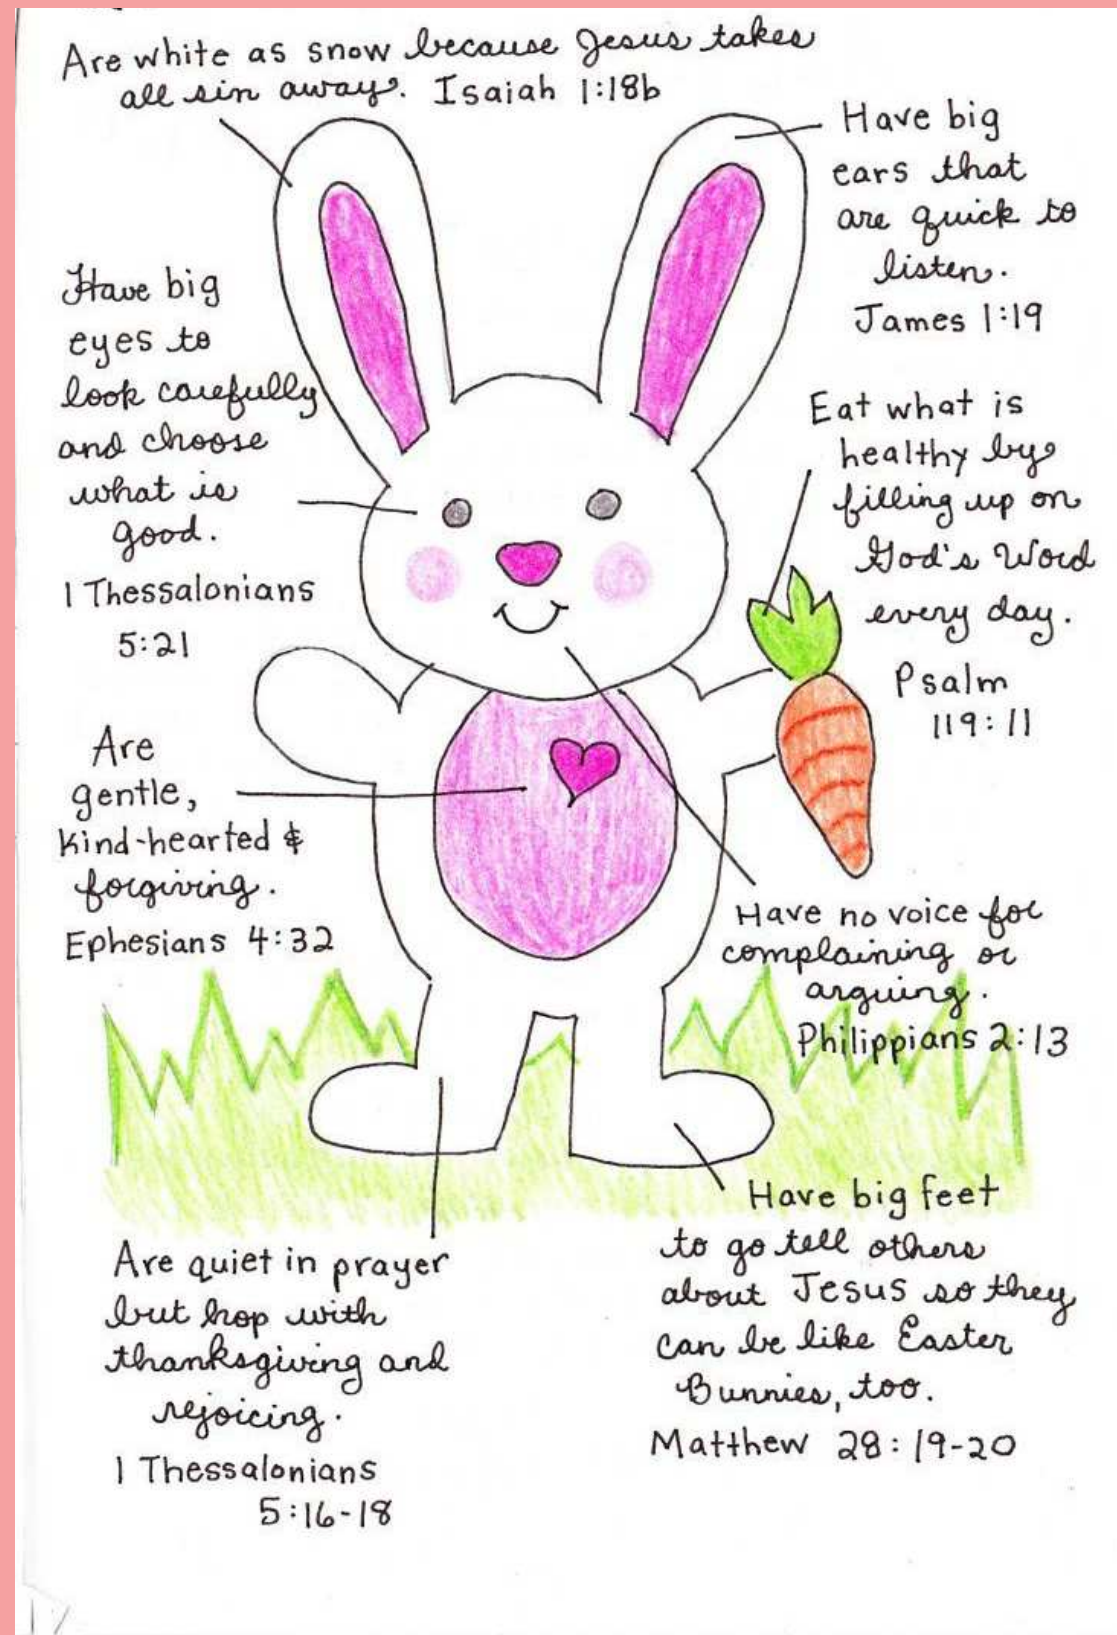 Are white as snow because Jesus takes
all sin away. Isaiah 1:18b
Have big
ears that
are quick to
listen.
James 1:19
Have big
eyes to
look carefully
and choose
what is
good.
1 Thessalonians
5:21
Eat what is
healthy by
filling up on
God's Word
every day.
Psalm
119:11
Are
gentle,
kind-hearted &
forgiving.
Ephesians 4:32
Have no voice for
complaining or
arguing.
Philippians 2:13
Are quiet in prayer
but hop with
thanksgiving and
rejoicing.
1 Thessalonians
5:16-18
Have big feet
to go tell others
about Jesus so they
can be like Easter
Bunnies, too.
Matthew 28:19-20